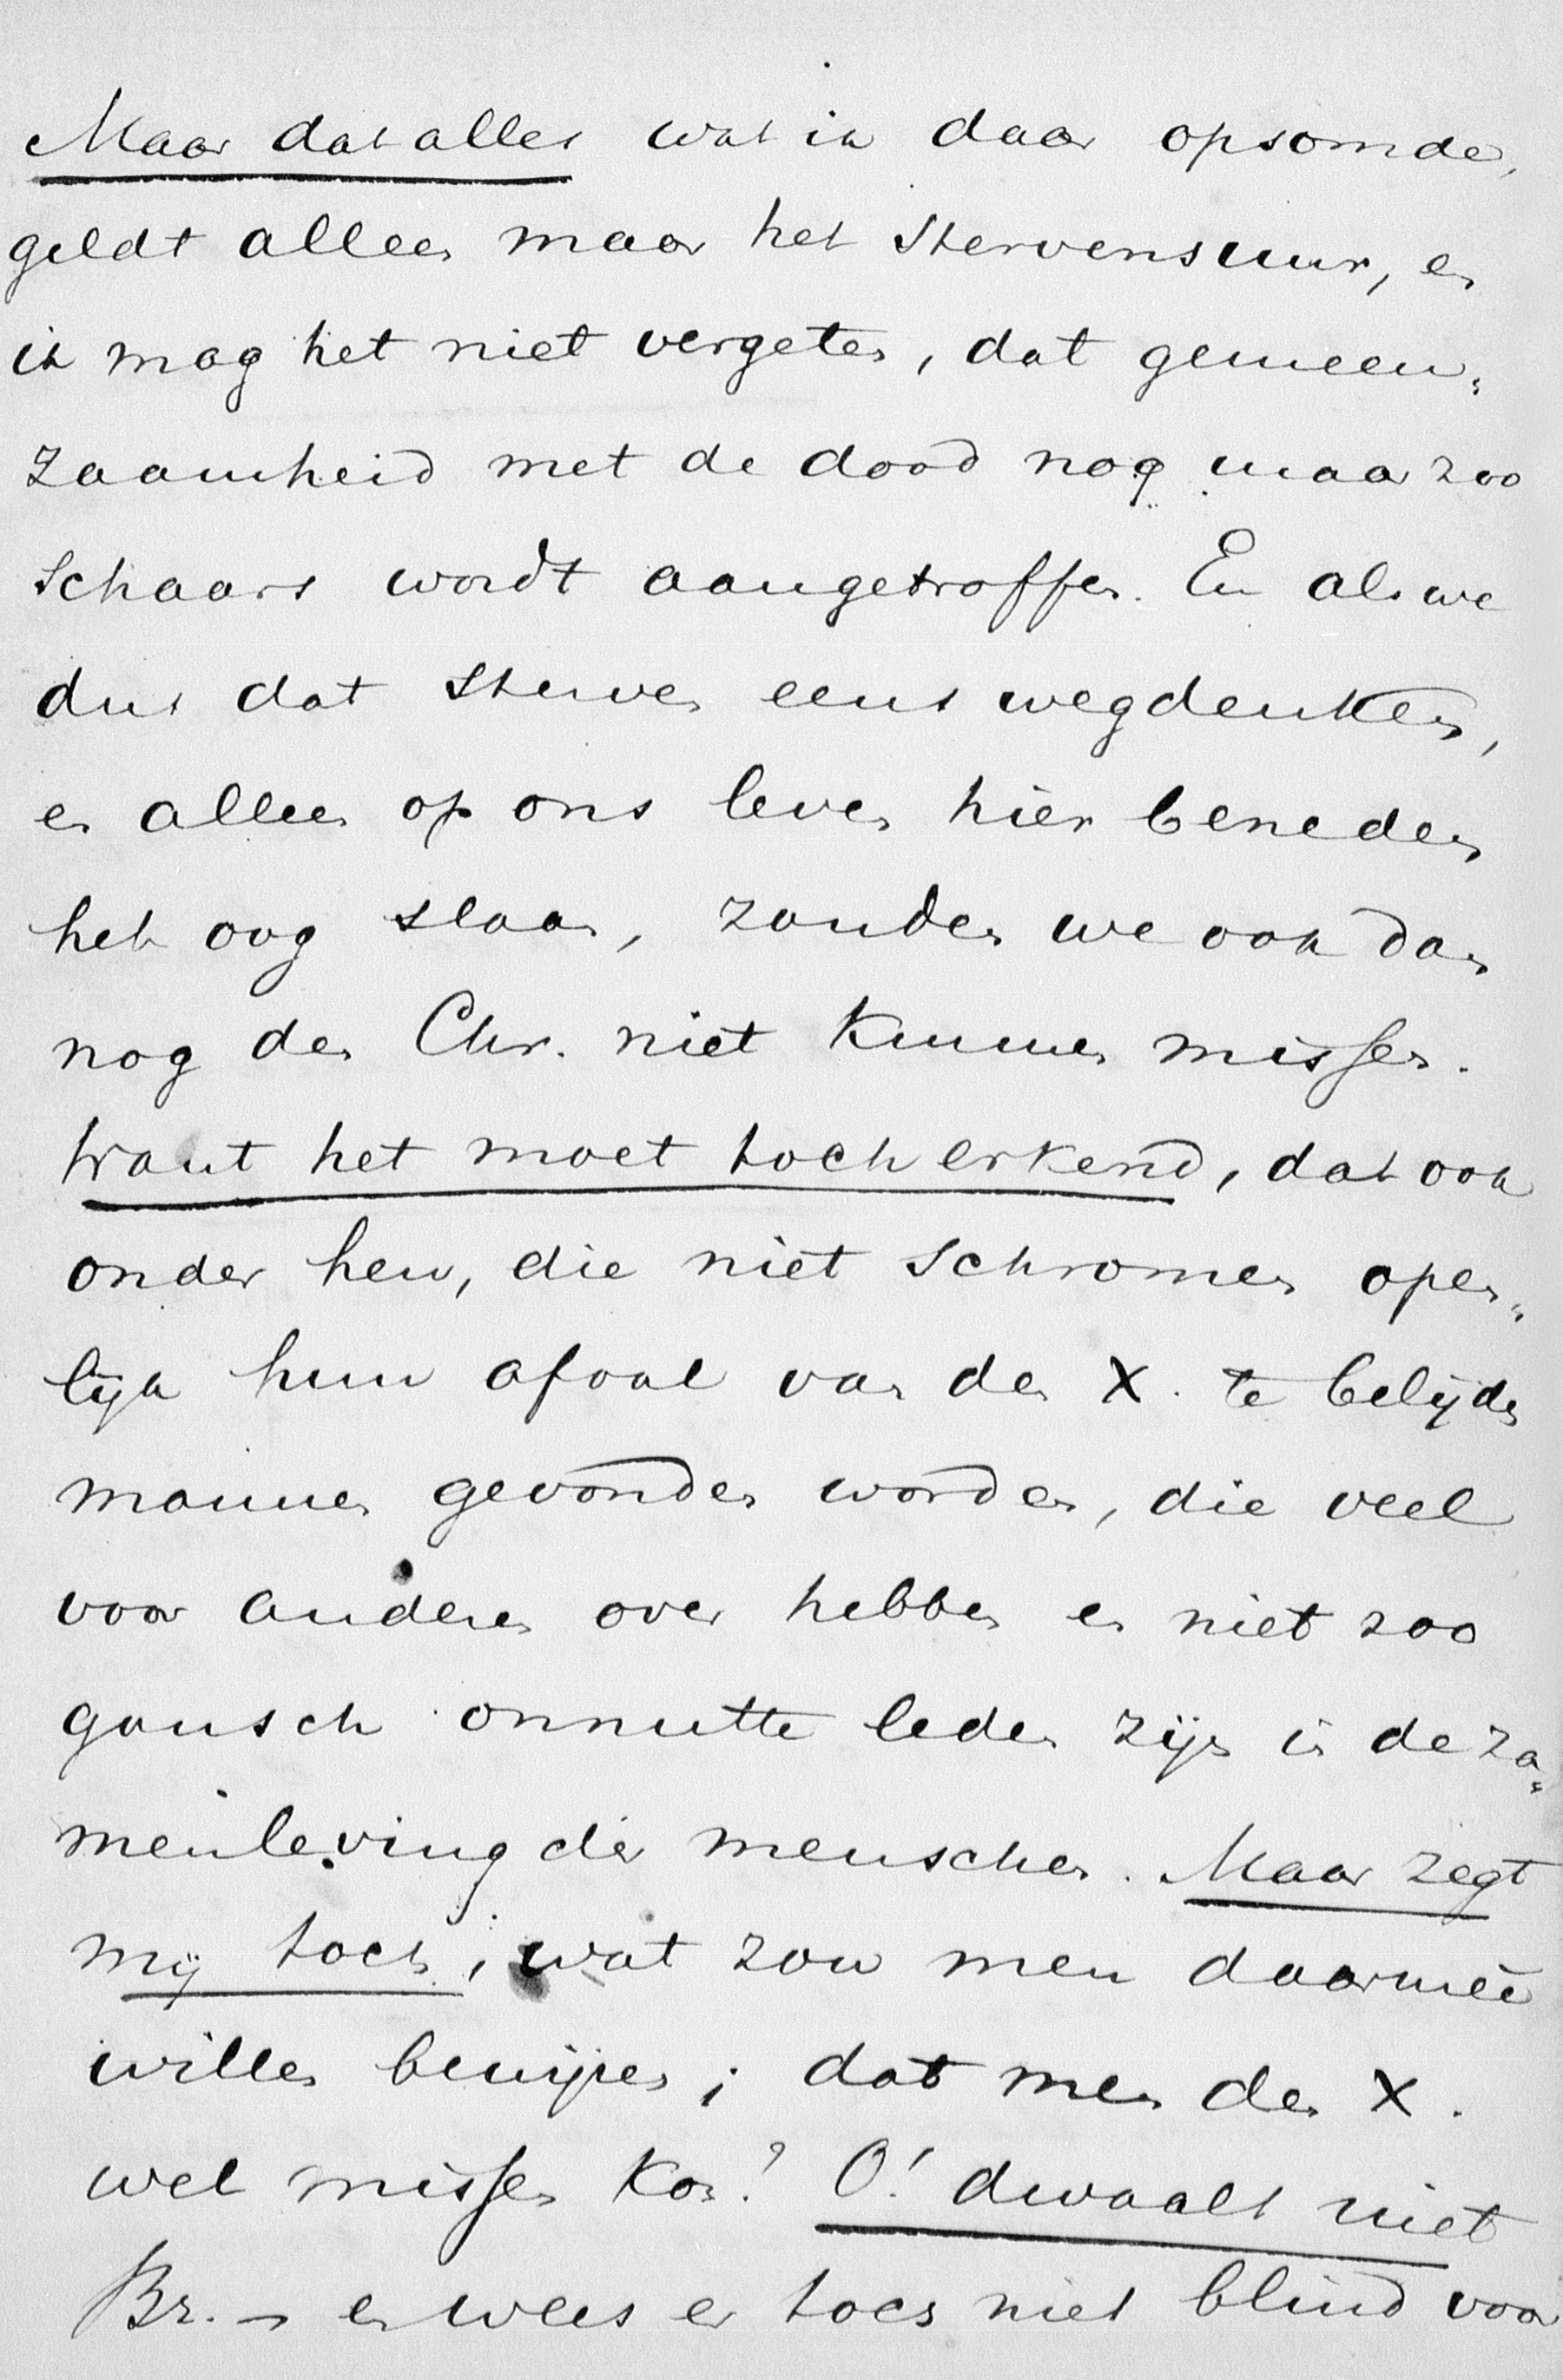 Maar dat alles wat ik daar opsomde,
geldt alleen maar het stervensuur, en
ik mag het niet vergeten, dat gemeen„
zaamheid met de dood nog maar zoo
schaars wordt aangetroffen. En als we
dus dat sterven eens wegdenken,
en alleen op ons leven hier beneden
het oog slaan, zouden we ook dan
nog den Chr. niet kunnen missen.
Want het moet toch erkend, dat ook
onder hen, die niet schromen open„
lijk hun afval van den X. te belijden
mannen gevonden worden, die veel
voor anderen over hebben en niet zoo
gansch onnutte leden zijn in de za„
menleving der menschen. Maar zegt
mij toch, wat zou men daarmeê
willen bewijzen; dat men den X.
wel missen kon? O! dwaalt niet
Br. – en wees er toch niet blind voor